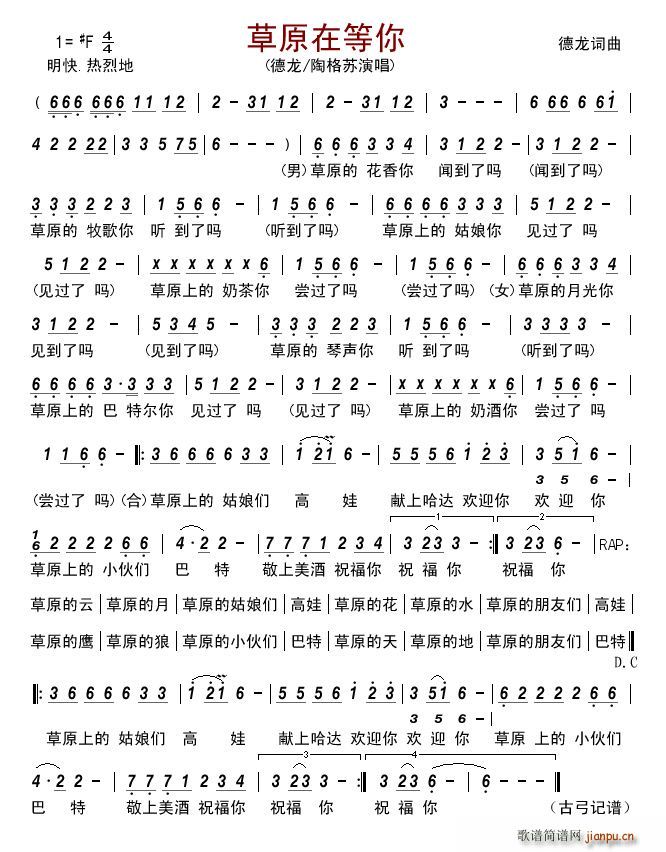 草原在等你
1=♯F 4/4
德龙词曲
明快.热烈地
(德龙/陶格苏演唱)
( 666 666 11 12 | 2 - 31 12 | 2 - 31 12 | 3 - - - | 6 66 6 61
4 2 2 22 | 3 3 5 75 | 6 - - - ) | 6 6 6 3 3 4 | 3 1 2 2 - | 3 1 2 2 - |
(男)草原的 花香你 闻到了吗 (闻到了吗)
3 3 3 2 2 3 | 1 5 6 6 - | 1 5 6 6 - | 6 6 6 6 3 3 3 | 5 1 2 2 - |
草原的 牧歌你 听 到了吗 (听到了吗) 草原上的 姑娘你 见过了 吗
5 1 2 2 - | x x x x x x 6 | 1 5 6 6 - | 1 5 6 6 - | 6 6 6 3 3 4 |
(见过了 吗) 草原上的 奶茶你 尝过了吗 (尝过了吗) (女)草原的月光你
3 1 2 2 - | 5 3 4 5 - | 3 3 3 2 2 3 | 1 5 6 6 - | 3 3 3 3 - |
见到了吗 (见到了吗) 草原的 琴声你 听 到了吗 (听到了吗)
6 6 6 6 3·3 3 3 | 5 1 2 2 - | 3 1 2 2 - | x x x x x x 6 | 1 5 6 6 - |
草原上的 巴 特尔你 见过了 吗 (见过了 吗) 草原上的 奶酒你 尝过了吗
1 1 6 6 - |: 3 6 6 6 6 3 3 | 1 21 6 - | 5 5 5 6 1 2 3 | 3 51 6 - |
3 5 6 -
(尝过了 吗)(合)草原上的 姑娘们 高 娃 献上哈达 欢迎你 欢 迎 你
1 2
1/6 2 2 2 2 6 6 | 4·2 2 - | 7 7 7 1 2 3 4 | 3 23 3 - :| 3 23 6 - | RAP:
草原上的 小伙们 巴 特 敬上美酒 祝福你 祝 福 你 祝福 你
草原的云|草原的月|草原的姑娘们|高娃|草原的花|草原的水|草原的朋友们|高娃|
草原的鹰|草原的狼|草原的小伙们|巴特|草原的天|草原的地|草原的朋友们|巴特‖
D.C
|: 3 6 6 6 6 3 3 | 1 21 6 - | 5 5 5 6 1 2 3 | 3 51 6 - | 6 2 2 2 2 6 6 |
3 5 6 -
草原上的 姑娘们 高 娃 献上哈达 欢迎你 欢 迎 你 草原 上的 小伙们
3 4
4·2 2 - | 7 7 7 7 1 2 3 4 | 3 23 3 - :| 3 23 6 - | 6 - - - ‖
巴 特 敬上美酒 祝福你 祝福 你 祝 福 你 (古弓记谱)
歌谱简谱网
jianpu.cn